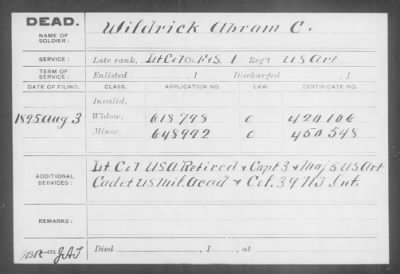 DEAD.
NAME OF SOLDIER: Wildrick Abram C.
SERVICE: Late rank, Lt Col Co. F&S. 1 Reg't US Art
TERM OF SERVICE: Enlisted , 1 Discharged , 1
DATE OF FILING. CLASS. APPLICATION NO. LAW. CERTIFICATE NO.
Invalid,
1895 Aug 3 Widow, 618,798 C 420,106
Minor, 648,992 C 450,548
ADDITIONAL SERVICES: Lt Col USA Retired & Capt 3 & Maj 5 US Art
Cadet US Mil. Acad & Col. 39 NJ Inf.
REMARKS:
Died , 1 , at